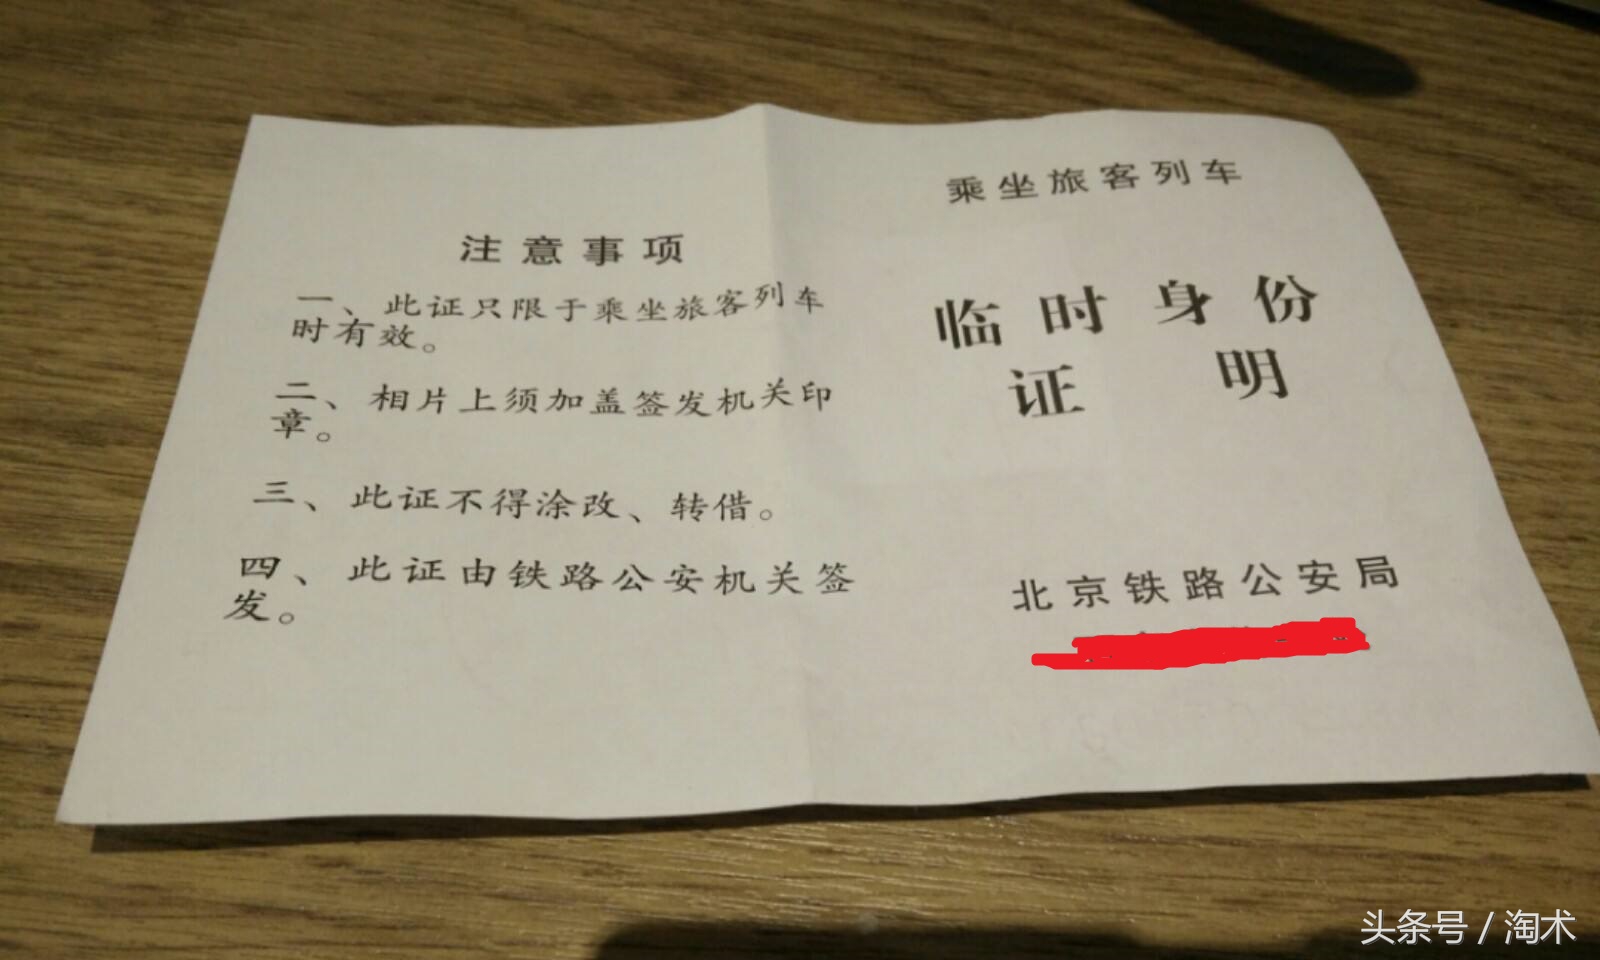 注意事项
一、此证只限于乘坐旅客列车
时有效。
二、相片上须加盖签发机关印
章。
三、此证不得涂改、转借。
四、此证由铁路公安机关签
发。
乘坐旅客列车
临时身份
证明
北京铁路公安局
头条号 / 淘术